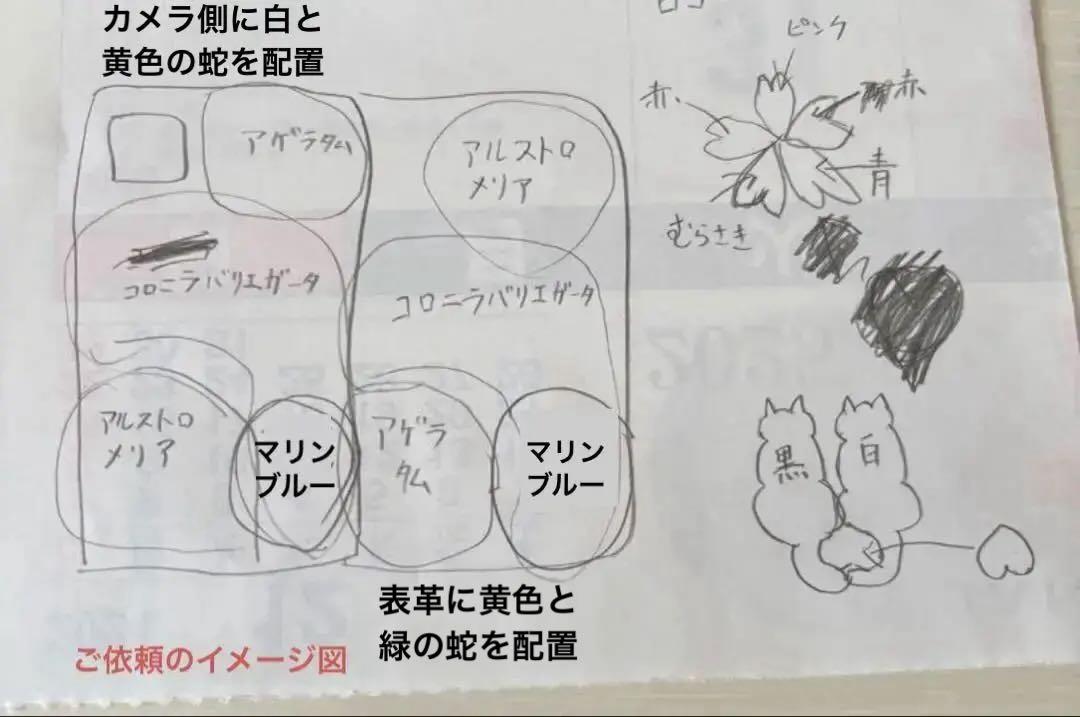 カメラ側に白と
黄色の蛇を配置
アゲラタム
コロニラバリエガータ
アルストロ
メリア
マリン
ブルー
アルストロ
メリア
コロニラバリエガータ
アゲラ
タム
マリン
ブルー
表革に黄色と
緑の蛇を配置
ご依頼のイメージ図
ピンク
赤
赤
青
むらさき
黒
白